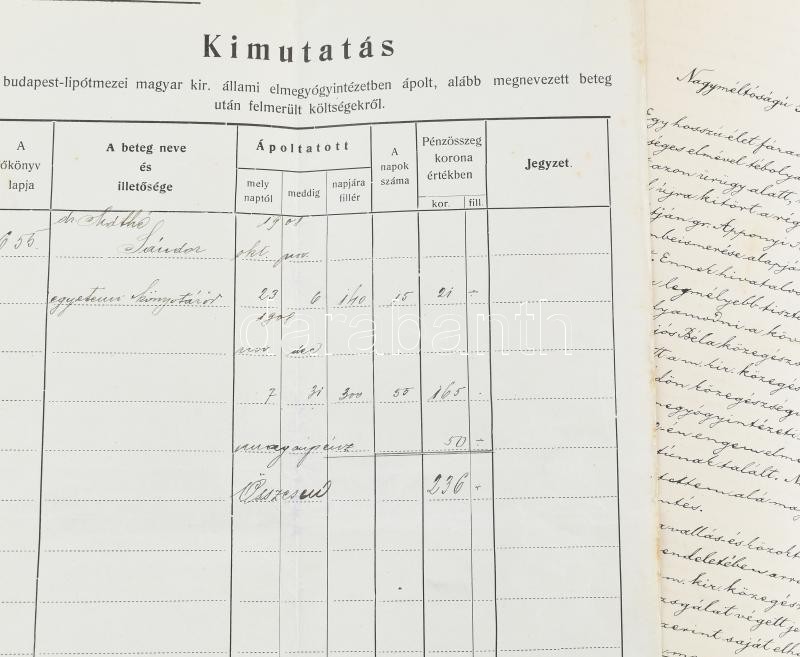 Kimutatás
budapest-lipótmezei magyar kir. állami elmegyógyintézetben ápolt, alább megnevezett beteg
után felmerült költségekről.
A
főkönyv
lapja
A beteg neve
és
illetősége
Ápoltatott
mely
naptól
meddig
napjára
fillér
A
napok
száma
Pénzösszeg
korona
értékben
kor.
fill.
Jegyzet.
dr Máthé 1901
655 Sándor okt nov.
egyetemi Könyvtárőr 23 6 140 15 21 -
1901
nov dec
7 31 300 55 165 -
50 -
Összesen 236 -
darabanth
Nagyméltóságú
Egy hosszú élet fára
séges elmével téboly
azon ürügy alatt,
újra kitört a rég
tján gr. Apponyi
nbeismerése alapjá
Ennek hivatalos
legmélyebb tiszt
lyamodni a köv
jós Béla közegész
tt a m. kir. közegés
dön közegészségü
megyógyintézeti
év-én engem elme
túnak talált. N
tettem alá ma
ntés.
a vallás és közokt
endeletében arra
m. kir. közegész
zsgálat végett je
szerint saját elh